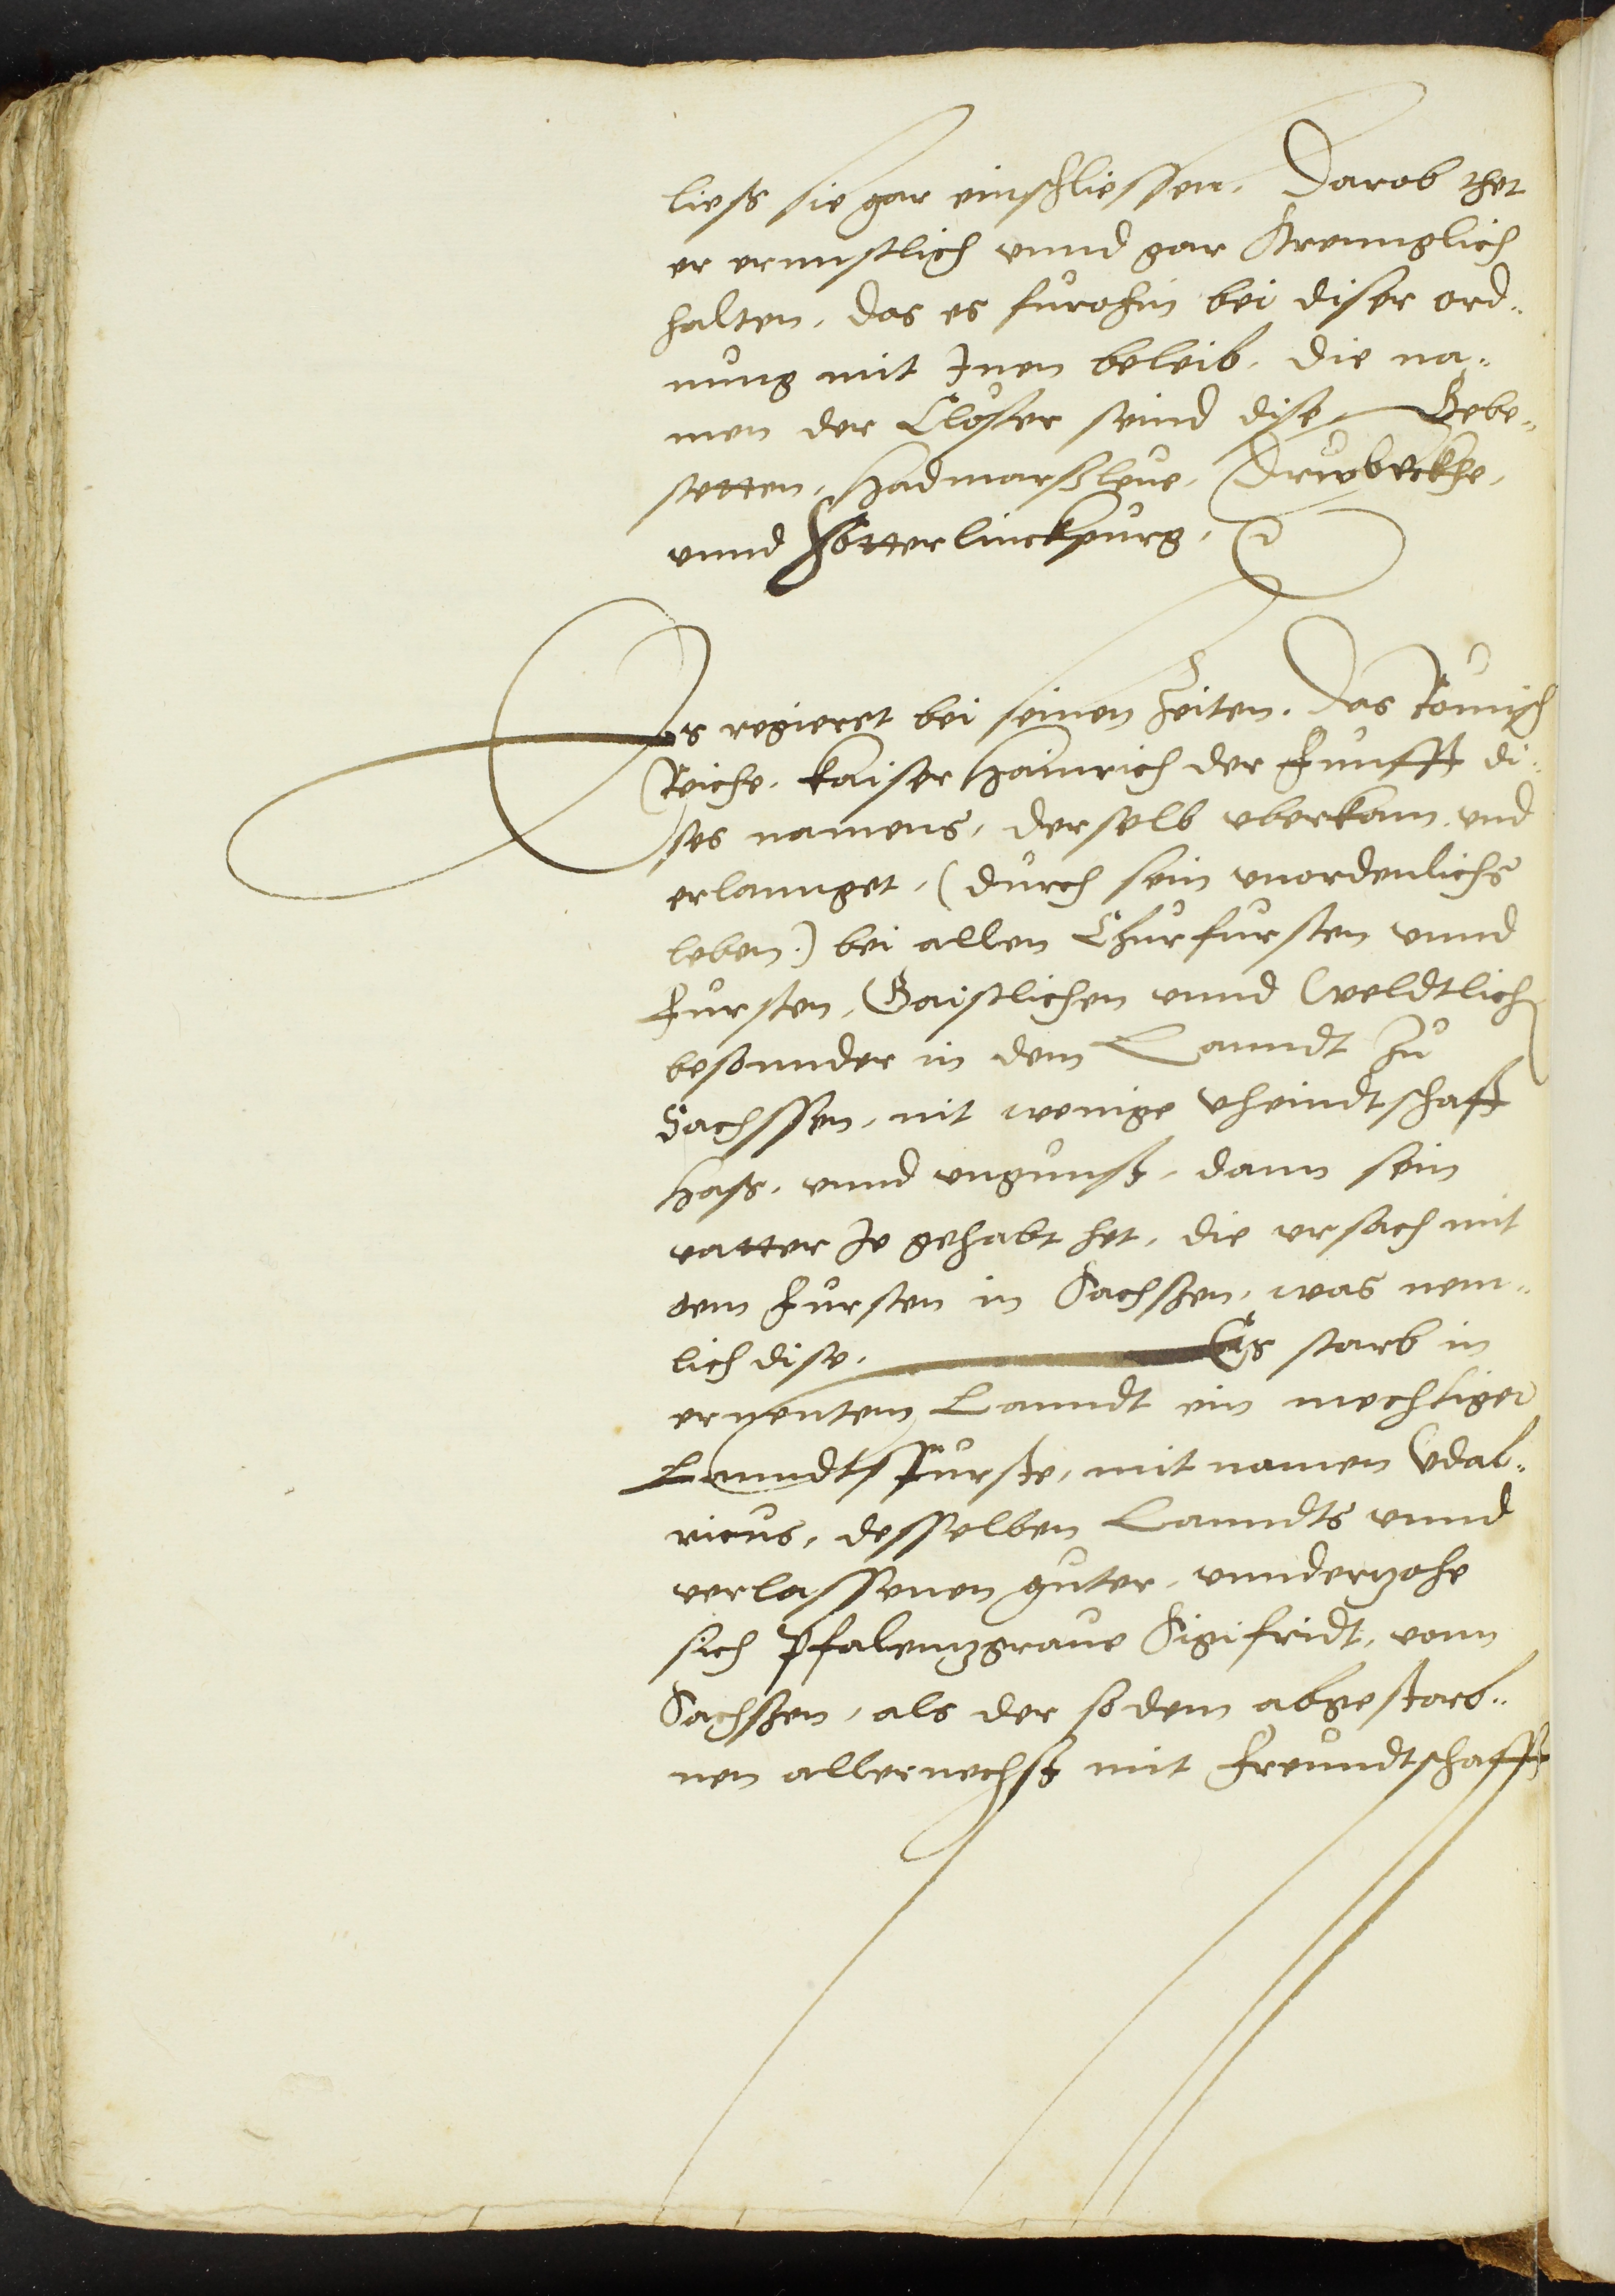 liess sie gar einschliessen, Darob thet
er ernnstlich vnnd gar strennglich
halten, das es furohin bei diser ord„
nung mit Inen beleib, die na„
men der Clöster seind dise Gebe„
stetten, Hadmarssleue, Drubeckhe,
vnnd Hotterlinckpurg,
Es regieret bei seinen Zeiten, das Römisch
Reiche, kaiser Hainrich der funfft di„
ses namens, derselb vberkam, vnd
erlannget, (durch sein vnordenlichs
leben) bei allen Churfursten vnnd
fursten, Gaistlichen vnnd Weldtlich
besonnder in dem Lanndt zu
Sachssen, nit wenige vheindtschafft
Hass, vnnd vngunst, dann sein
vatter Je gehabt het, die vrsach mit
dem fursten in Sachssen, was nem„
lich dise, Es starb in
ernentem Lanndt ein mechtiger
Lanndtsfurste, mit namen Vdal„
ricus, desselben Lanndts vnnd
verlassenen guter, vnnderzohe
sich Pfalenzgraue Sigifridt, vonn
Sachssen, als der so dem abgestorb„
nen allernechst mit freundtschafft